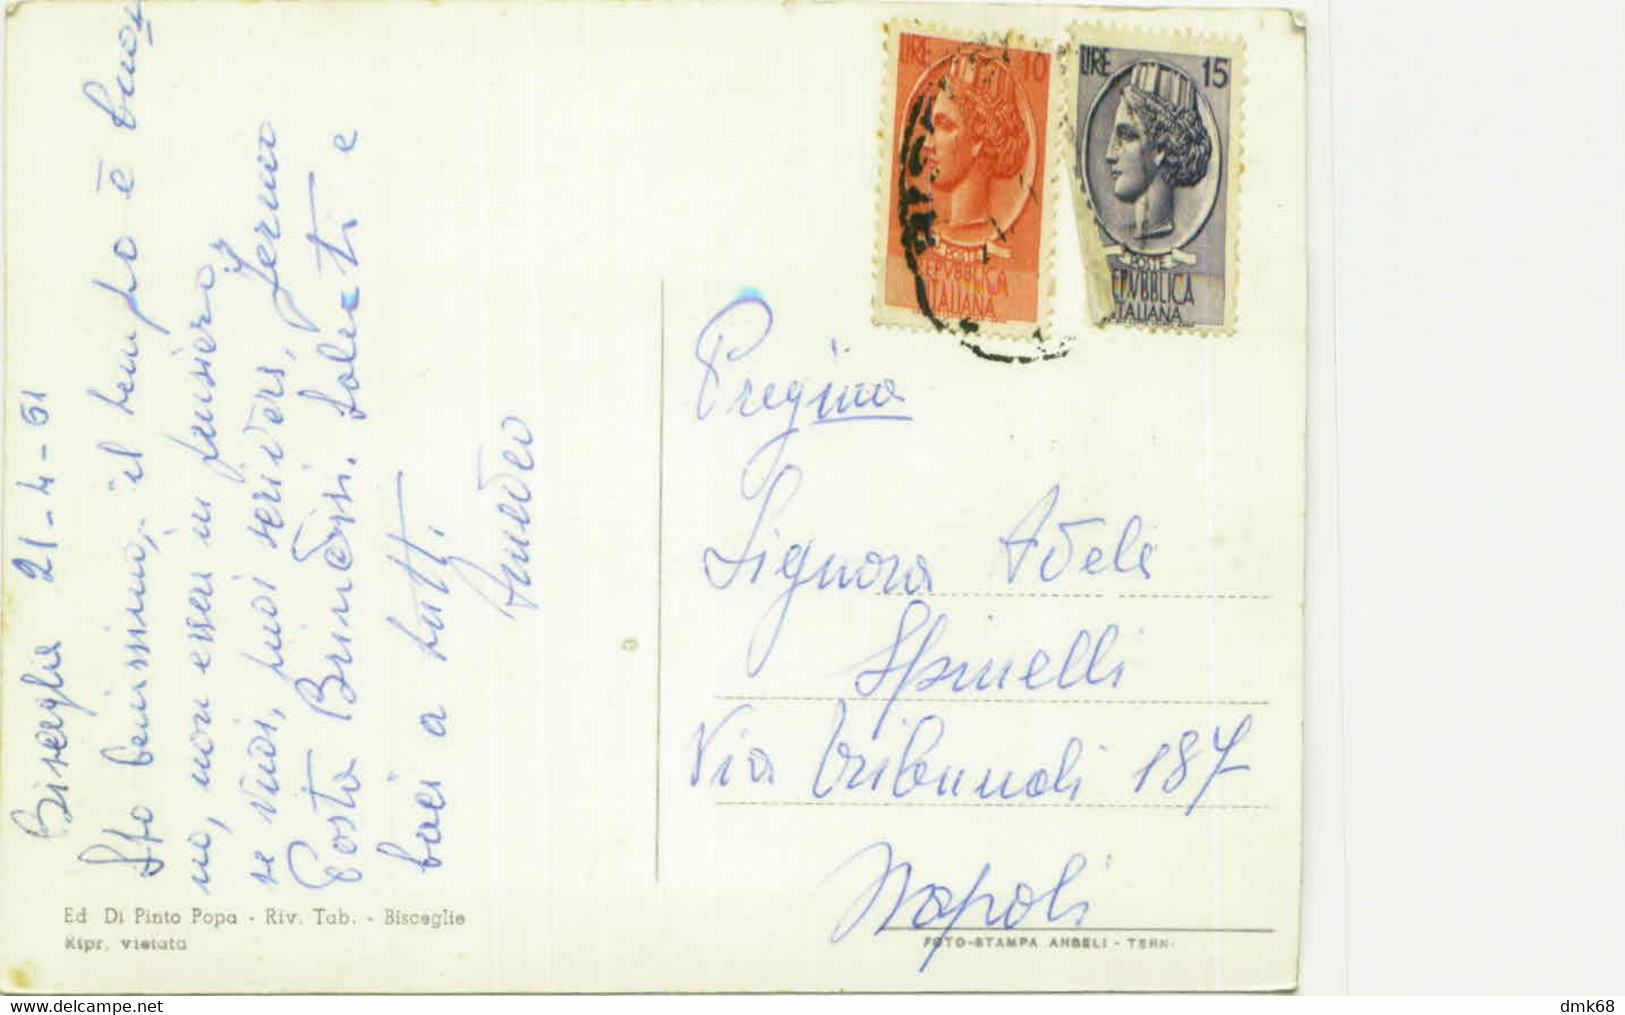 Bisceglie 21-4-61
Sto benissimo, il tempo è buo
no, non essere in pensiero,
se vuoi, puoi scrivers, Fermo
Posta Brindisi. Saluti e
baci a tutti.
Amedeo
LIRE 10
POSTE
REPVBBLICA
ITALIANA
LIRE 15
POSTE
REPVBBLICA
ITALIANA
Pregima
Signora Adele
Spinelli
Via Tribunali 187
Napoli
Ed Di Pinto Popa - Riv. Tab. - Bisceglie
Ripr. vietata
FOTO-STAMPA ANGELI - TERNI
dmk68